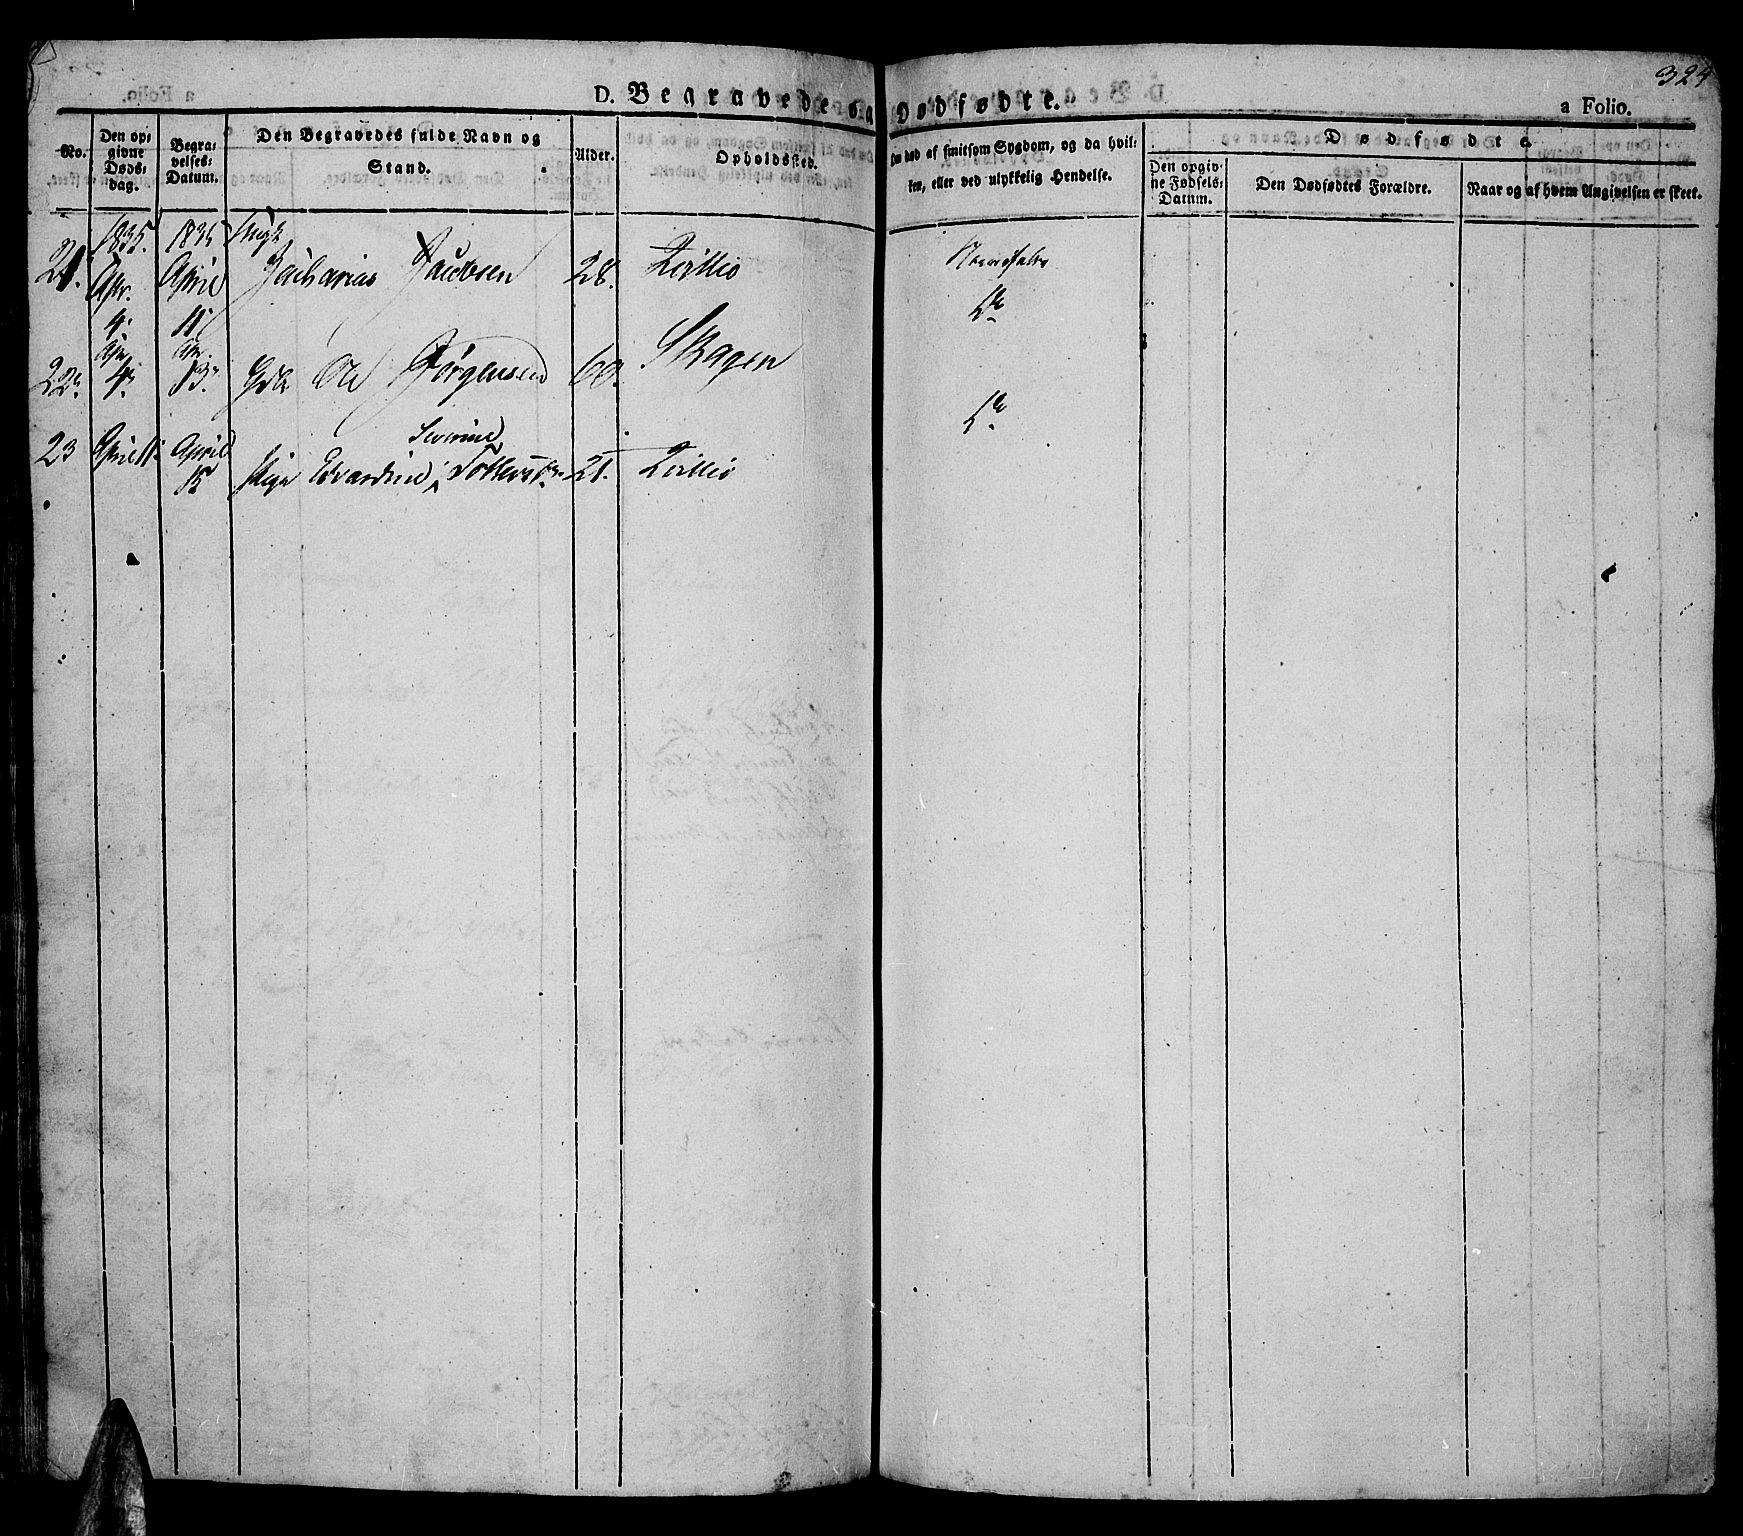 324
D. Begravede og Dødfødte.
a Folio.
No.
Den op-
givne
Døds-
dag.
Begra-
velses-
Datum.
Den Begravedes fulde Navn og
Stand.
Alder.
Opholdssted.
Om død af smitsom Sygdom, og da hvil-
ken, eller ved ulykkelig Hendelse.
Dødfødte.
Den opgiv-
ne Fødsels-
Datum.
Den Dødfødtes Forældre.
Naar og af hvem Angivelsen er skeet.
1835. 1835
21. Apr. April Zacharias Jacobsen 28.
4. 11.
Apr. Apr. Skagen
22. 4. 13. Ole Jørgensen 60.
Severine
23 April 11. April
15 Pige Edvardine 21.